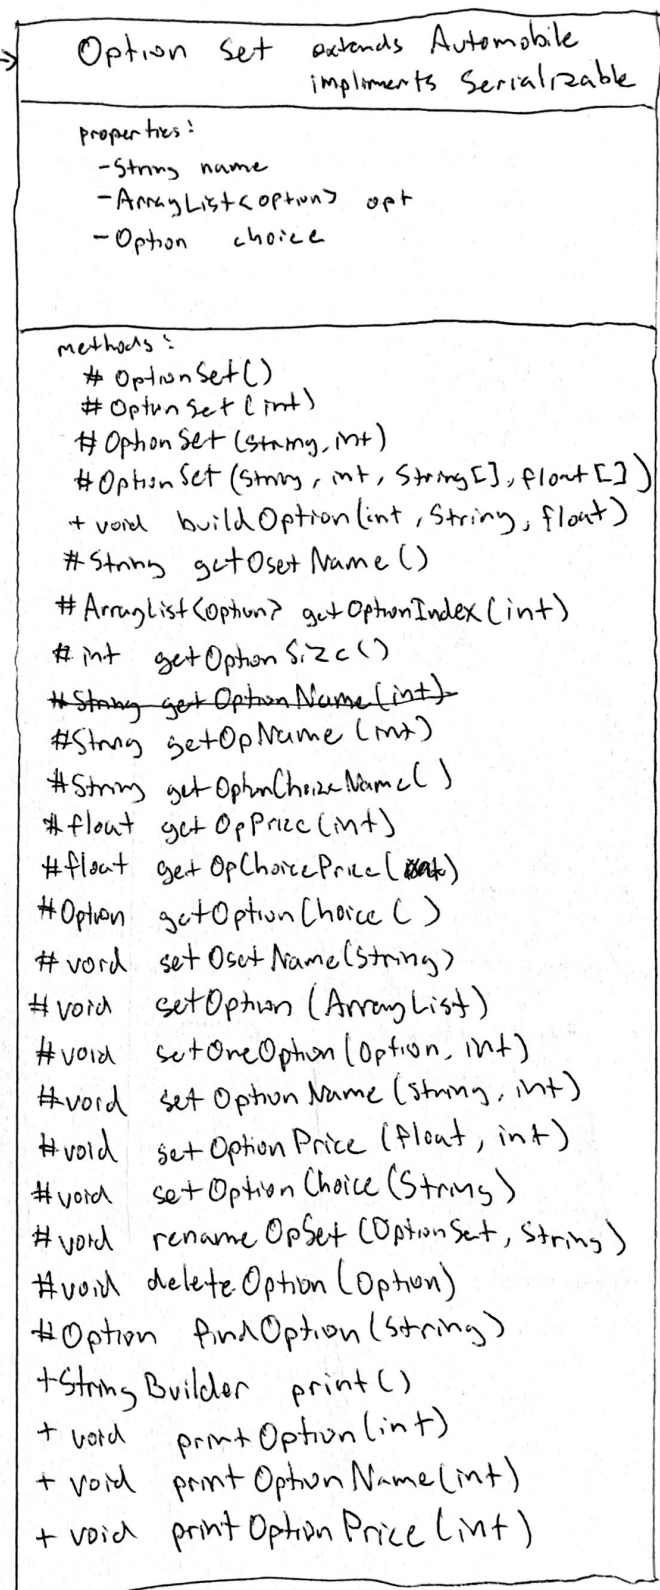 Option Set extends Automobile
impliments Serializable
properties:
-String name
-ArrayList<option> opt
-Option choice
methods:
# OptionSet()
# OptionSet(int)
# OptionSet(String, int)
# OptionSet(String, int, String[], float[])
+ void buildOption(int, String, float)
# String getOsetName()
# ArrayList<option> getOptionIndex(int)
# int getOptionSize()
# String getOptionName(int)
# String getOpName(int)
# String getOptionChoiceName()
# float getOpPrice(int)
# float getOpChoicePrice()
# Option getOptionChoice()
# void setOsetName(String)
# void setOption(ArrayList)
# void setOneOption(Option, int)
# void setOptionName(String, int)
# void setOptionPrice(float, int)
# void setOptionChoice(String)
# void renameOpSet(OptionSet, String)
# void deleteOption(Option)
# Option findOption(String)
+ StringBuilder print()
+ void printOption(int)
+ void printOptionName(int)
+ void printOptionPrice(int)